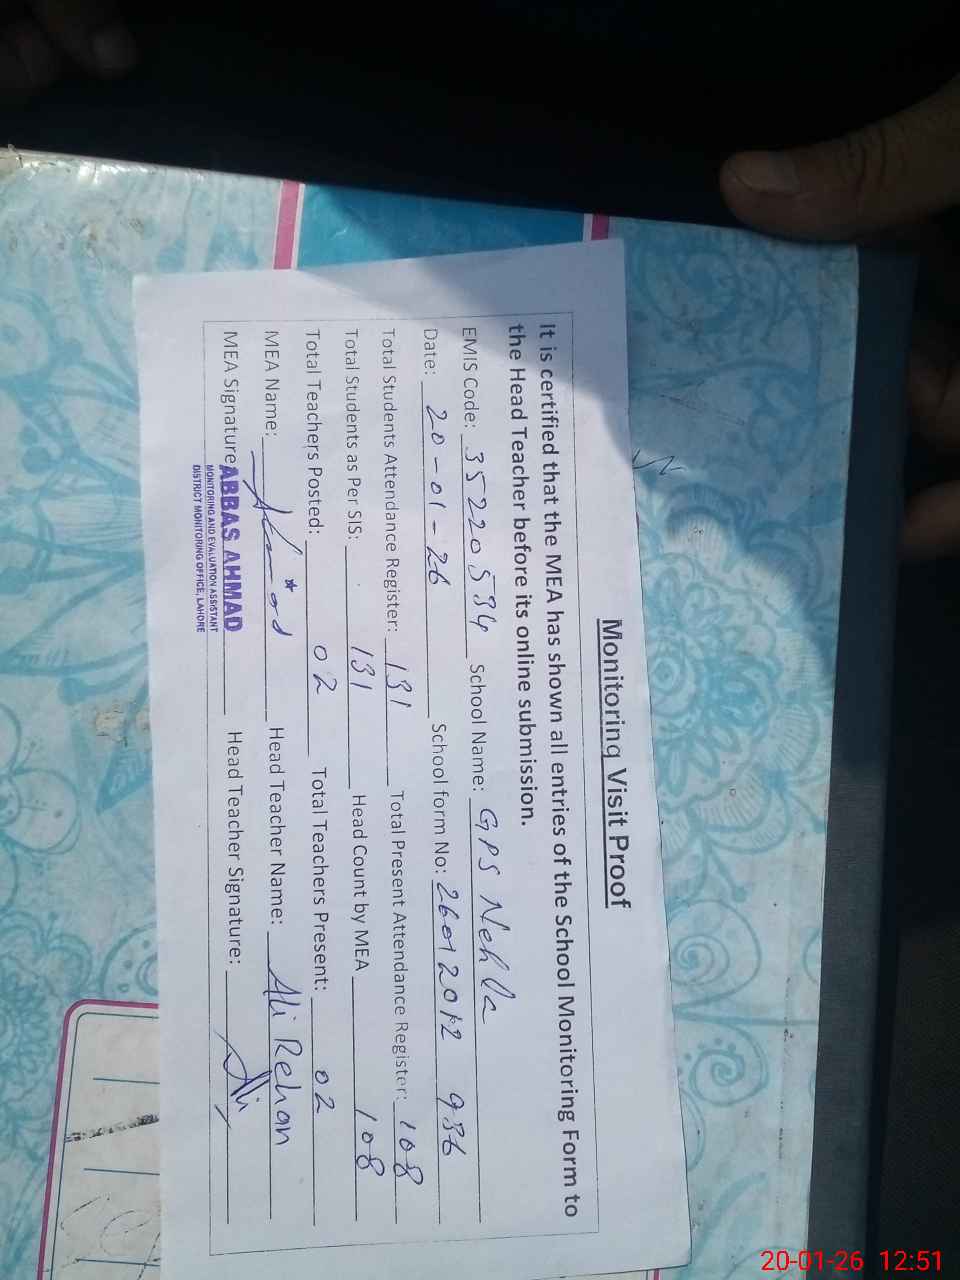 Monitoring Visit Proof
It is certified that the MEA has shown all entries of the School Monitoring Form to
the Head Teacher before its online submission.
EMIS Code: 35220534 School Name: GPS Nehla
Date: 20-01-26 School form No: 936
Total Students Attendance Register: 131 Total Present Attendance Register: 108
Total Students as Per SIS: 131 Head Count by MEA 108
Total Teachers Posted: 02 Total Teachers Present: 02
MEA Name: Head Teacher Name: Ali Rehan
MEA Signature ABBAS AHMAD Head Teacher Signature: Ali
MONITORING AND EVALUATION ASSISTANT
DISTRICT MONITORING OFFICE, LAHORE
20-01-26 12:51